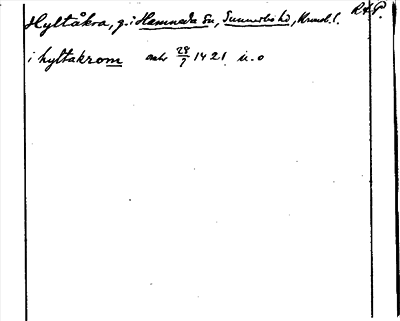 Hyltåkra, g. i Hamneda sn, Sunnerbo hd, Kronob. l. RAP.
i hyltakrom avskr 28/7 1421 u. o